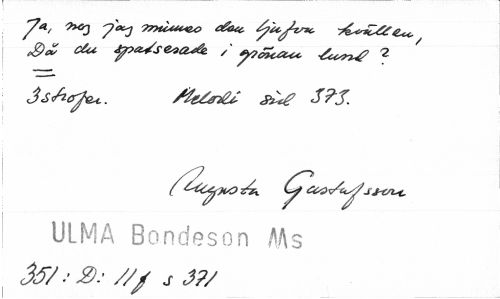 Ja, nog jag minnes den ljufva kvällen,
Då du spatserade i grönan lund?
3 strofer. Melodi sid 373.
Augusta Gustafsson
ULMA Bondeson Ms
351: D: 11 f s 371